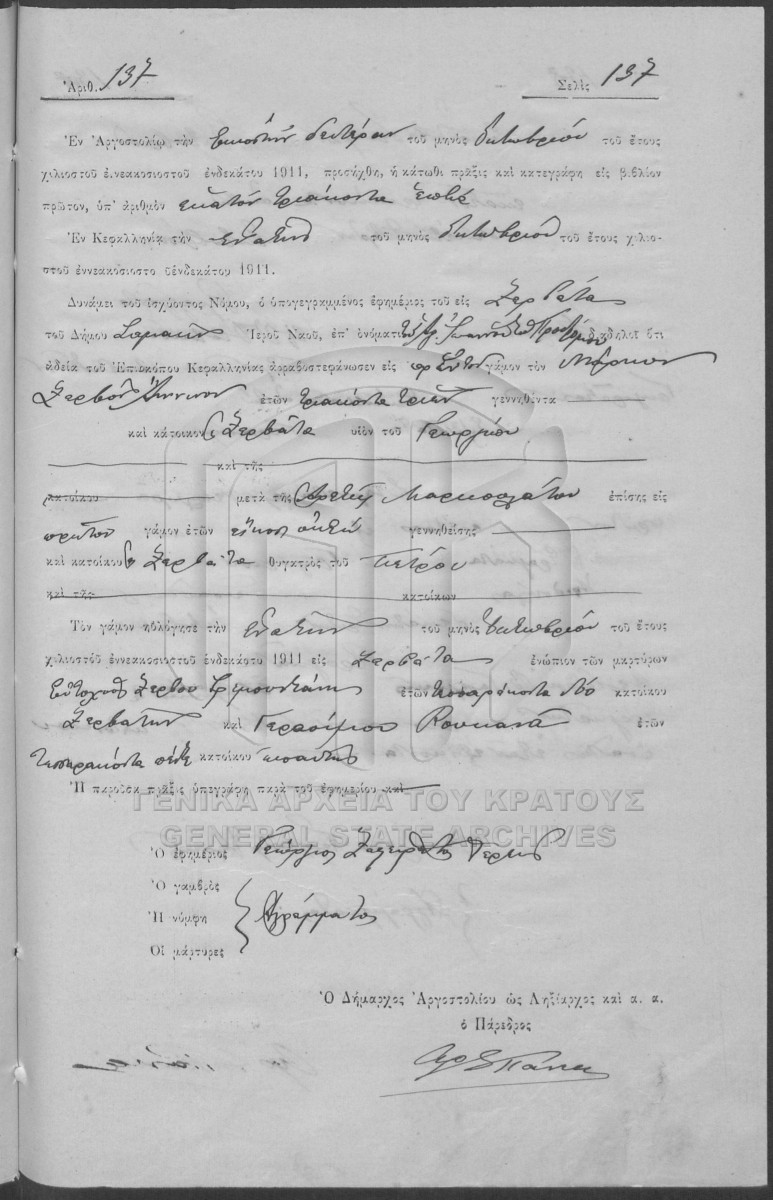 Ἀριθ. 137 Σελὶς 137
Ἐν Ἀργοστολίῳ τὴν εἰκοστὴν δευτέραν τοῦ μηνὸς Ὀκτωβρίου τοῦ ἔτους
χιλιοστοῦ ἐννεακοσιοστοῦ ἑνδεκάτου 1911, προσήχθη, ἡ κάτωθι πρᾶξις καὶ κατεγράφη εἰς βιβλίον
πρῶτον, ὑπ' ἀριθμὸν ἑκατὸν τριάκοντα ἑπτὰ
Ἐν Κεφαλληνίᾳ τὴν ἐνάτην τοῦ μηνὸς Ὀκτωβρίου τοῦ ἔτους χιλιο-
στοῦ ἐννεακοσιοστο ῦἑνδεκάτου 1911.
Δυνάμει τοῦ ἰσχύοντος Νόμου, ὁ ὑπογεγραμμένος ἐφημέριος τοῦ εἰς Ζερβάτα
τοῦ Δήμου Σαμαίων Ἱεροῦ Ναοῦ, ἐπ' ὀνόματι τοῦ Ἁγ. Ἰωάννου τοῦ Προδρόμου διαδηλοῖ ὅτι
ἀδείᾳ τοῦ Ἐπισκόπου Κεφαλληνίας ἀρραβοστεφάνωσεν εἰς πρῶτον γάμον τὸν Μάρκον
Ζερβὸν ἐτῶν τριάκοντα τριῶν γεννηθέντα
καὶ κάτοικον Ζερβάτα υἱὸν τοῦ Γεωργίου
καὶ τῆς
κατοίκου μετὰ τῆς Ἀρετῆς Μαρκουλάτου ἐπίσης εἰς
πρῶτον γάμον ἐτῶν εἴκοσι ὀκτὼ γεννηθείσης
καὶ κατοίκου Ζερβάτα θυγατρὸς τοῦ Πέτρου
καὶ τῆς κατοίκων
Τὸν γάμον ηὐλόγησε τὴν ἐνάτην τοῦ μηνὸς Ὀκτωβρίου τοῦ ἔτους
χιλιοστοῦ ἐννεακοσιοστοῦ ἑνδεκάτου 1911 εἰς Ζερβάτα ἐνώπιον τῶν μαρτύρων
Ζερβοῦ ἐτῶν τεσσαράκοντα δύο κατοίκου
Ζερβάτων καὶ Γερασίμου Ρουκανᾶ ἐτῶν
τεσσαράκοντα πέντε κατοίκου
Ἡ παροῦσα πρᾶξις ὑπεγράφη παρὰ τοῦ ἐφημερίου καὶ
ΓΕΝΙΚΑ ΑΡΧΕΙΑ ΤΟΥ ΚΡΑΤΟΥΣ
GENERAL STATE ARCHIVES
Ὁ ἐφημέριος Γεώργιος
Ὁ γαμβρὸς
Ἡ νύμφη Ἀγράμματοι
Οἱ μάρτυρες
Ὁ Δήμαρχος Ἀργοστολίου ὡς Ληξίαρχος καὶ α. α.
ὁ Πάρεδρος